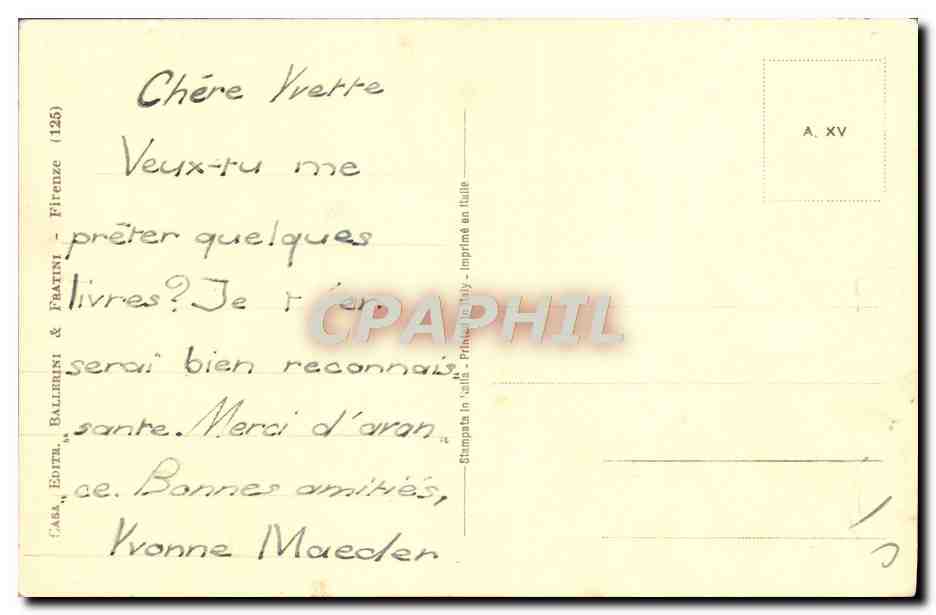 Chére Yvette
Veux-tu me
prêter quelques
livres? Je t'en
serai bien reconnais„
„sante. Merci d'avan„
„ce. Bonnes amitiés,
Yvonne Maeder
CASA EDITR. BALLERINI & FRATINI - Firenze (125)
Stampata in Italia - Printed in Italy - Imprimé en Italie
A. XV
CPAPHIL